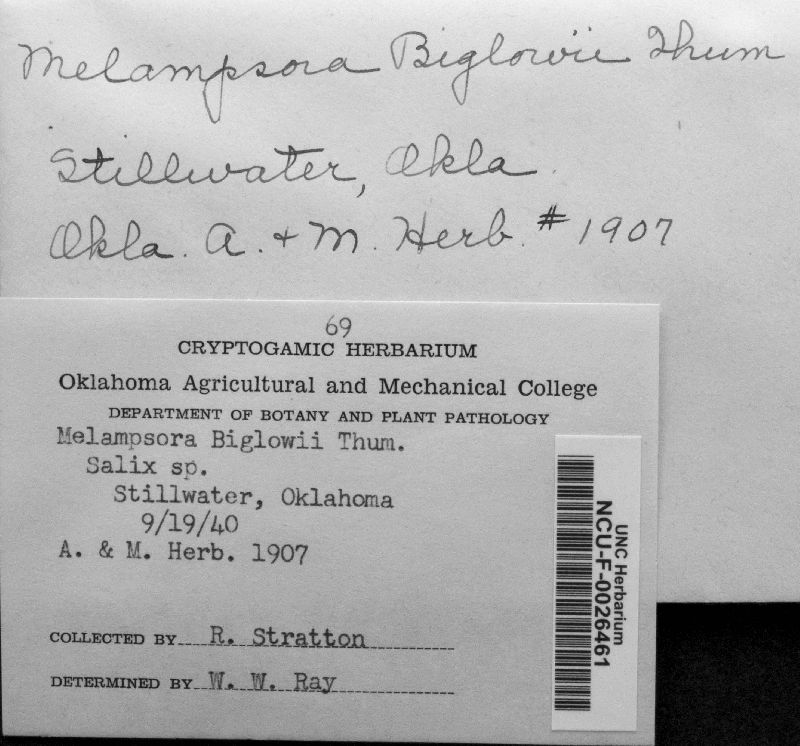 Melampsora Biglowii Thum
Stillwater, Okla.
Okla. A. + M. Herb. # 1907
69
CRYPTOGAMIC HERBARIUM
Oklahoma Agricultural and Mechanical College
DEPARTMENT OF BOTANY AND PLANT PATHOLOGY
Melampsora Biglowii Thum.
Salix sp.
Stillwater, Oklahoma
9/19/40
A. & M. Herb. 1907
COLLECTED BY R. Stratton
DETERMINED BY W. W. Ray
UNC Herbarium
NCU-F-0026461